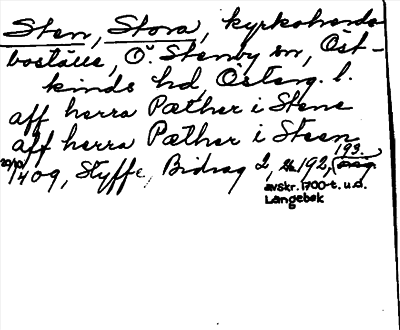 Sten, Stora, kyrkoherde-
boställe, Ö. Stenby sn, Öst-
kinds hd, Österg. l.
aff herra Pæther i Stene
aff herra Pæther i Steen
20/10 1409, Styffe, Bidrag 2, s. 192, 193.
avskr. 1700-t. u.a.
Langebek